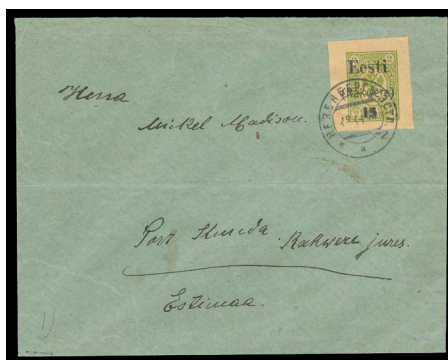 Eesti
15
Herra
Mickel Madison.
Port Kunda. Rakwere jures.
Estimaa.
1)